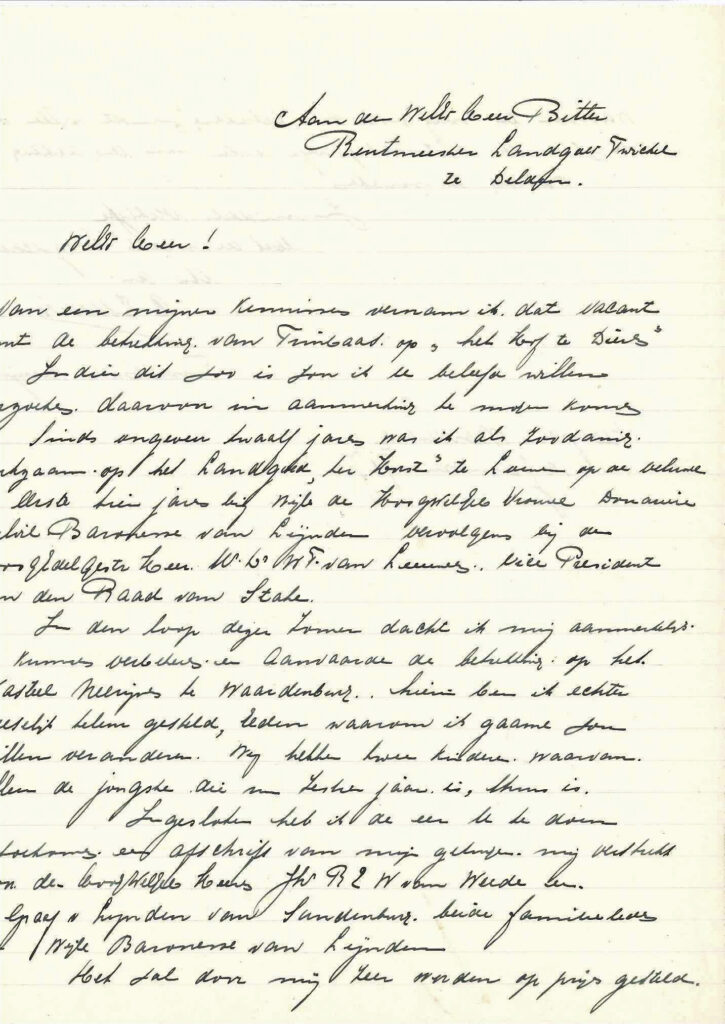 Aan den WelEd Heer Bitter
Rentmeester Landgoed Twickel
te Delden.
WelEd Heer!
Van een mijner kennissen vernam ik. dat vacant
de betrekking. van Tuinbaas. op „het Hof te Dieren"
Indien dit zoo is zou ik U beleefd willen
daarvoor in aanmerking te mogen komen
Sinds ongeveer twaalf jaren was ik als zoodanig.
op het Landgoed „ter Horst" te Loenen op de Veluwe
eerste tien jaren bij wijle de Hoogwelgb Vrouwe Douairière
Baronesse van Lijnden vervolgens bij de
Heer. van Leeuwen., Vice President
den Raad van State.
In den loop dezer zomer dacht ik mij aanmerkelijk.
kunnen verbeteren. en aanvaarde de betrekking. op het.
Kasteel Neerijnen te Waardenburg.. hier ben ik echter
teleur gesteld, reden waarom ik gaarne zou
willen veranderen. Wij hebben twee kinderen. waarvan.
de jongste die zestien jaar. is, thuis is.
Ingesloten heb ik de eer U te doen
toekomen. een afschrift van mijn getuigen. mij verstrekt
de Hoogwelgb Heeren Jhr R E W van Weede en.
Graaf v Lijnden van Sandenburg. beide familieleden
Wijle Baronesse van Lijnden
Het zal door mij zeer worden op prijs gesteld.